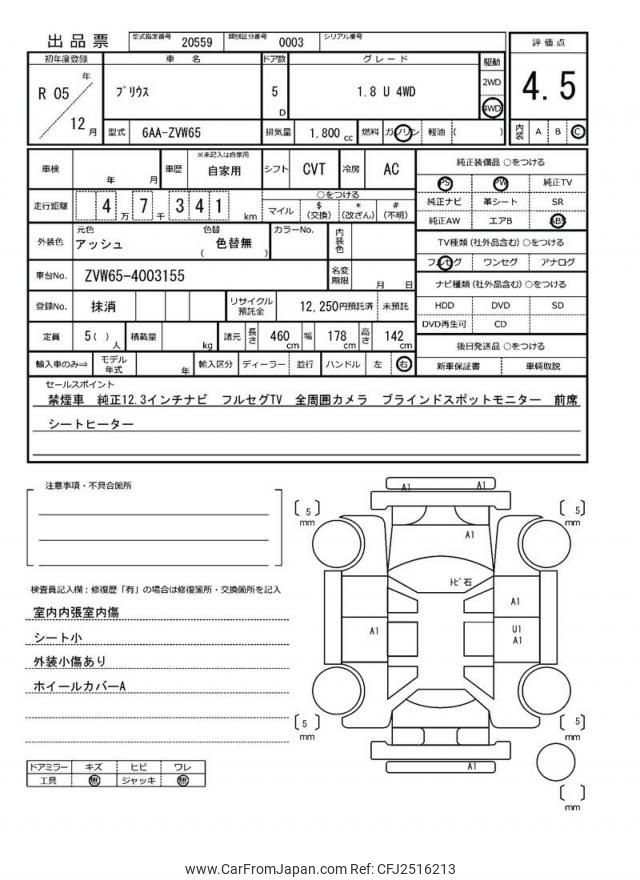 出品票 型式指定番号 20559 類別区分番号 0003 シリアル番号
評価点
4.5
内装 A B C
初年度登録 車名 ドア数 グレード 駆動
R 05 年 12 月 プリウス 5 D 1.8 U 4WD 2WD 4WD
型式 6AA-ZVW65 排気量 1.800 cc 燃料 ガソリン 軽油 ( )
車検 年 月 車歴 ※未記入は自家用 自家用 シフト CVT 冷房 AC
走行距離 4 万 7 千 3 4 1 km
○をつける
マイル $ (交換) * (改ざん) # (不明)
外装色 元色 アッシュ 色替 ( 色替無 ) カラーNo. 内装色
車台No. ZVW65-4003155 名変期限 月 日
登録No. 抹消 リサイクル預託金 12,250円預託済 未預託
定員 5( ) 人 積載量 kg 諸元 長さ 460 cm 幅 178 cm 高さ 142 cm
輸入車のみ⇒ モデル年式 年 輸入区分 ディーラー 並行 ハンドル 左 右
純正装備品 ○をつける
PS PW 純正TV
純正ナビ 革シート SR
純正AW エアB ABS
TV種類(社外品含む)○をつける
フルセグ ワンセグ アナログ
ナビ種類(社外品含む)○をつける
HDD DVD SD
DVD再生可 CD
後日発送品 ○をつける
新車保証書 車輌取説
セールスポイント
禁煙車 純正12.3インチナビ フルセグTV 全周囲カメラ ブラインドスポットモニター 前席
シートヒーター
注意事項・不具合箇所
検査員記入欄:修復歴「有」の場合は修復箇所・交換箇所を記入
室内内張室内傷
シート小
外装小傷あり
ホイールカバーA
ドアミラー キズ ヒビ ワレ
工具 無 ジャッキ 無
A1 A1
5 mm
5 mm
A1
トビ石
A1
A1
U1
A1
5 mm
5 mm
A1
mm
www.CarFromJapan.com Ref: CFJ2516213